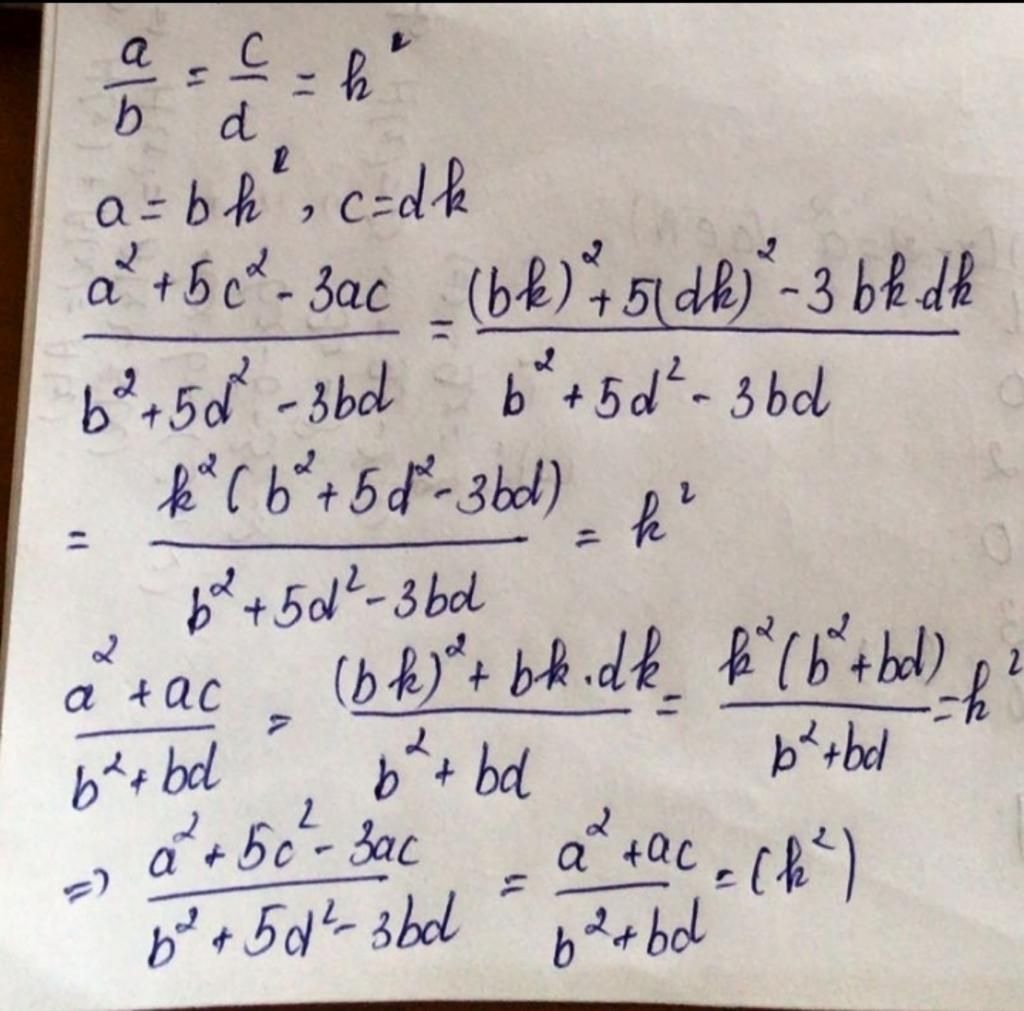 a/b = c/d = k²
a = bk², c = dk
(a² + 5c² - 3ac)/(b² + 5d² - 3bd) = ((bk)² + 5(dk)² - 3bk.dk)/(b² + 5d² - 3bd)
= (k²(b² + 5d² - 3bd))/(b² + 5d² - 3bd) = k²
(a² + ac)/(b² + bd) = ((bk)² + bk.dk)/(b² + bd) = (k²(b² + bd))/(b² + bd) = k²
=> (a² + 5c² - 3ac)/(b² + 5d² - 3bd) = (a² + ac)/(b² + bd) = (k²)